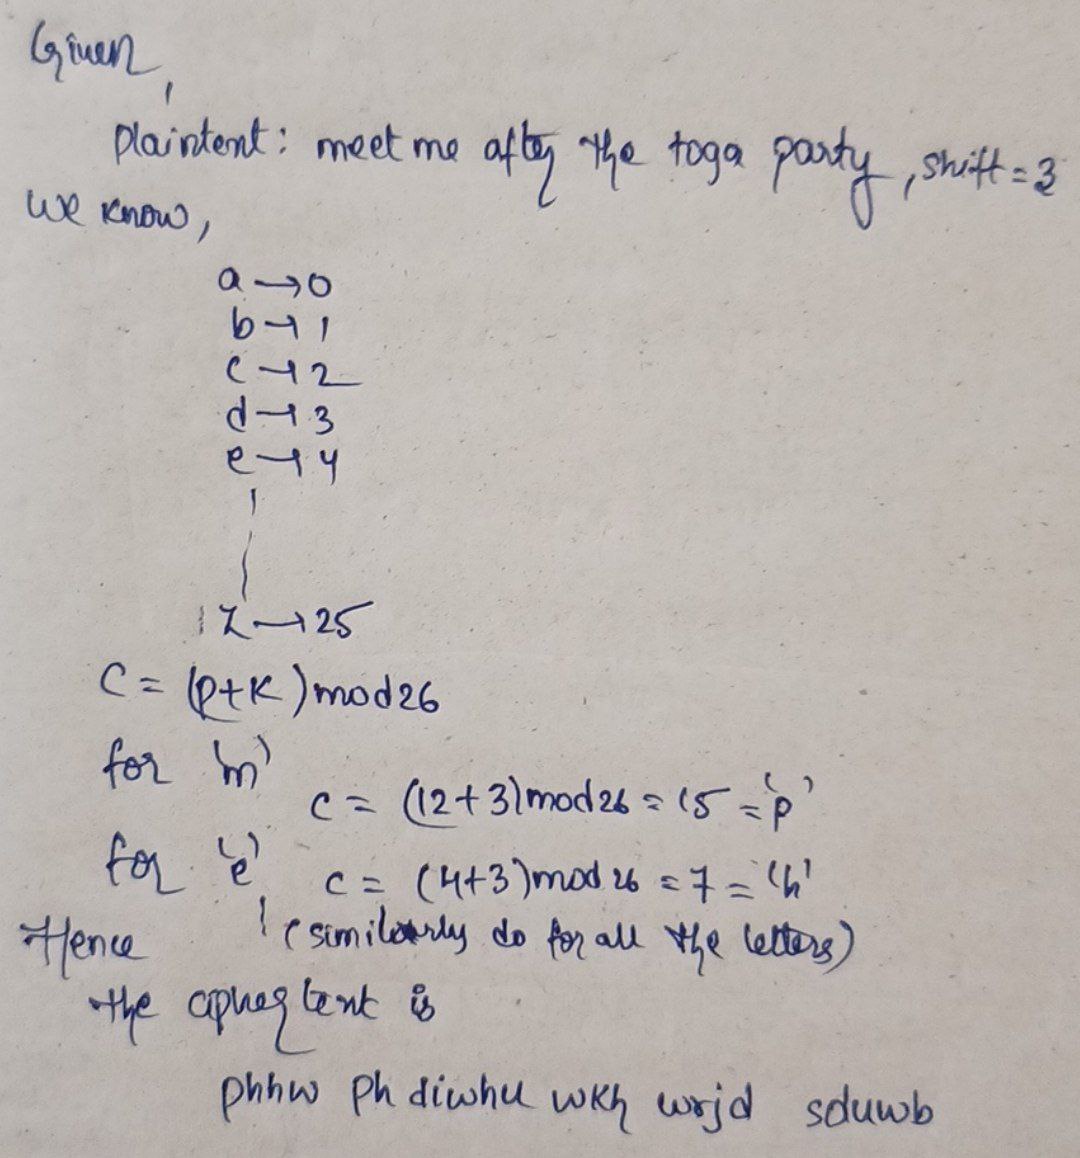 Given,
plaintent: meet me after the toga party, shift=3
we know,
a→0
b→1
c→2
d→3
e→4
z→25
C = (P+K) mod 26
for 'm'
c = (12+3) mod 26 = 15 = 'p'
for 'e',
c = (4+3) mod 26 = 7 = 'h'
Hence (similarly do for all the letters)
the ciphertent is
phhw ph diwhu wkh wrjd sduwb